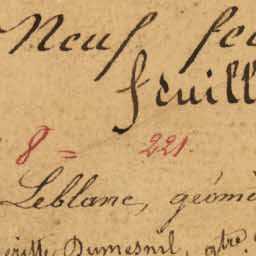 Neuf feu
feuill
8 = 221.
Leblanc, géomè
Dumesnil,